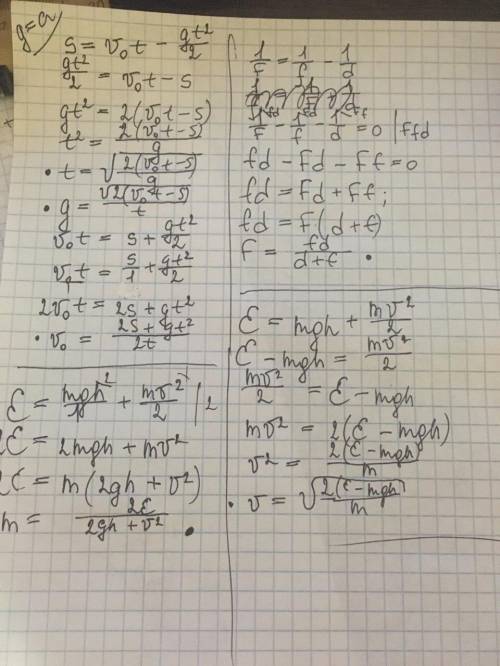 g=a
s = v₀t − gt²/2
gt²/2 = v₀t − s
gt² = 2(v₀t − s)
t² = 2(v₀t − s)/g
• t = √(2(v₀t − s)/g)
• g = √2(v₀t − s)/t
v₀t = s + gt²/2
v₀t = s/1 + gt²/2
2v₀t = 2s + gt²
• v₀ = (2s + gt²)/2t
Ɛ = mgh + mv²/2 |2
2Ɛ = 2mgh + mv²
2Ɛ = m(2gh + v²)
m = 2Ɛ/(2gh + v²) •
1/F = 1/f − 1/d
1/F − 1/f − 1/d = 0 | Ffd
fd − Fd − Ff = 0
fd = Fd + Ff;
fd = F(d + f)
F = fd/(d + f) •
Ɛ = mgh + mv²/2
Ɛ − mgh = mv²/2
mv²/2 = Ɛ − mgh
mv² = 2(Ɛ − mgh)
v² = 2(Ɛ − mgh)/m
• v = √(2(Ɛ − mgh)/m)